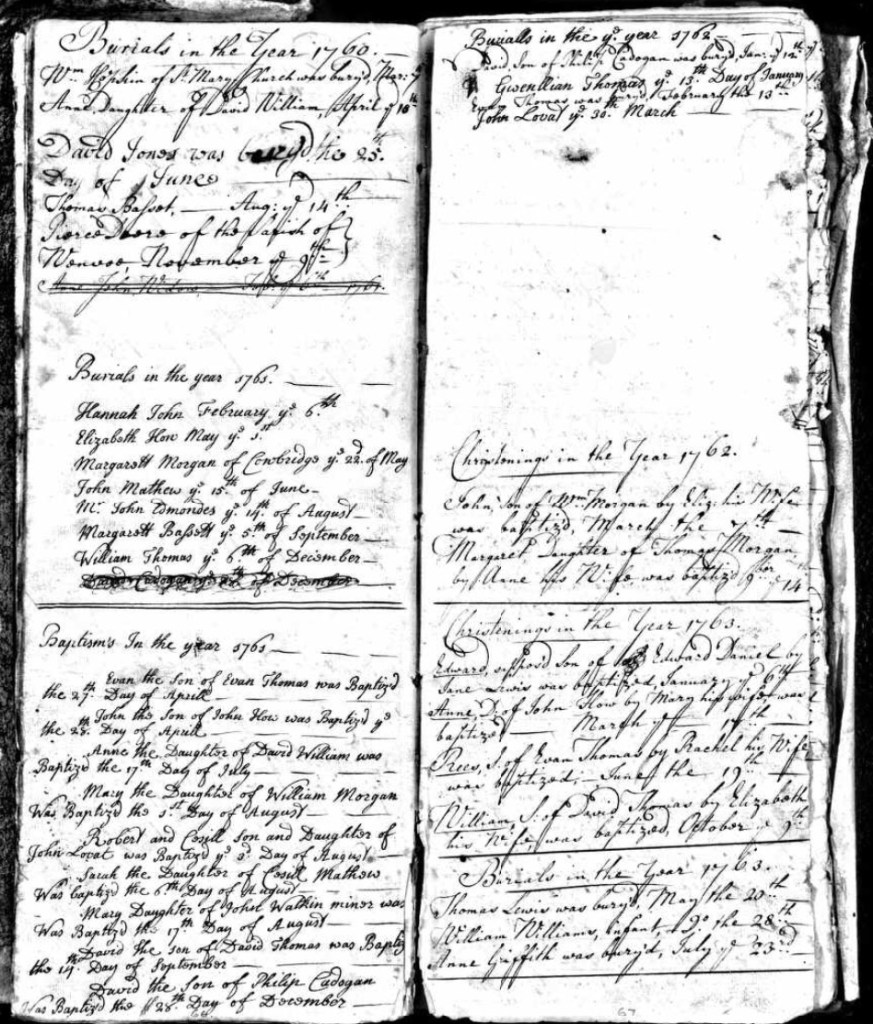 Burials in the Year 1760.
Wm Hopkin of St Mary Church was buryd, Mar: ye
Anne Daughter of David William, April ye 16th
David Jones was buryd the 25th
Day of June
Thomas Basset, Aug: ye 14th
Pierce Deere of the Parish of
Wenvoe, November ye 9th
Anne John Widow, 6th 1761.
Burials in the year 1761.
Hannah John February ye 6th
Elizabeth How May ye 1st
Margarett Morgan of Cowbridge ye 22d of May
John Mathew ye 15th of June
Mr John Edmondes ye 14th of August
Margarett Bassett ye 5th of September
William Thomas ye 6th of December
David Cadogan ye of December
Baptism's In the year 1761
Evan the Son of Evan Thomas was Baptiz'd
the 27th Day of Aprill
John the Son of John How was Baptiz'd ye
the 28th Day of April
Anne the Daughter of David William was
Baptiz'd the 17th Day of July
Mary the Daughter of William Morgan
Was Baptiz'd the 1st Day of August
Robert and Cesill Son and Daughter of
John Lovat was Baptiz'd ye Day of August
Sarah the Daughter of Cesill Mathew
Was baptiz'd the 6th Day of August
Mary Daughter of John Watkin minor was
Was Baptiz'd the 17th Day of August
David the Son of David Thomas was Baptiz'd
the 14 Day of September
David the Son of Philip Cadogan
Was Baptiz'd the 28th Day of December
Burialls in the ye year 1762
David, Son of Philip Cadogan was buryd, Jan: ye 12th
Gwenllian Thomas ye 13th Day of January
Evan Thomas was buryd, February the 13th
John Lovat ye 30th March
Christenings in the Year 1762.
John, Son of Wm Morgan by Eliz: his Wife
was baptiz'd, March the 7th
Margaret Daughter of Thomas Morgan
by Anne his Wife was baptiz'd 9ber ye 14
Christenings in the Year 1763.
Edward, suppos'd Son of Edward Daniel by
Jane Lewis was baptized, January ye 6th
Anne, D. of John How by Mary his wife was
baptized March ye 14th
Rees, S. of Evan Thomas by Rachel his Wife
was baptized, June the 19th
William, S. of David Thomas by Elizabeth
his Wife was baptized, October ye 9th
Burials in the Year 1763.
Thomas Lewis was buryd, May the 20th
William Williams, infant, Do the 28th
Anne Griffith was buryd, July ye 23d
67